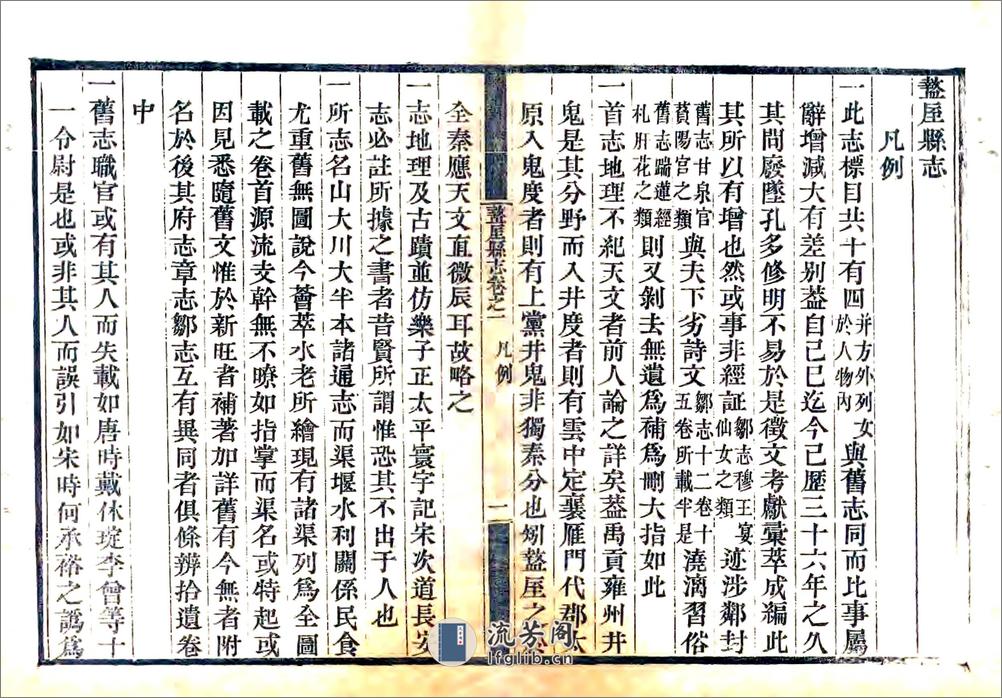 盩厔縣志
凡例
一此志標目共十有四并方外列女於人物內與舊志同而比事屬
辭增減大有差別葢自己巳迄今已歷三十六年之久
其間廢墜孔多修明不易於是徵文考獻彙萃成編此
其所以有增也然或事非經証鄒志穆王宴仙女之類迹涉鄰封
舊志甘泉宫萯陽宫之類與夫下劣詩文鄒志十二卷十五卷所載半是澆漓習俗
舊志踹蓮經札肝花之類則又剝去無遺爲補爲刪大指如此
一首志地理不紀天文者前人論之詳矣葢禹貢雍州井
鬼是其分野而入井度者則有雲中定襄雁門代郡太
原入鬼度者則有上黨井鬼非獨秦分也矧盩厔之
盩厔縣志卷之一
凡例
一
全秦應天文直微辰耳故略之
一志地理及古蹟並仿樂子正太平寰宇記宋次道長安
志必註所據之書者昔賢所謂惟恐其不出于人也
一所志名山大川大半本諸通志而渠堰水利關係民食
尤重舊無圖說今薈萃水老所繪現有諸渠列爲全圖
載之卷首源流支幹無不暸如指掌而渠名或特起或
因見悉隨舊文惟於新旺者補著加詳舊有今無者附
名於後其府志章志鄒志互有異同者俱條辨拾遺卷
中
一舊志職官或有其人而失載如唐時戴休琁李曾等十
一令尉是也或非其人而誤引如宋時何承裕之譌爲
流芳阁
lfglib.cn